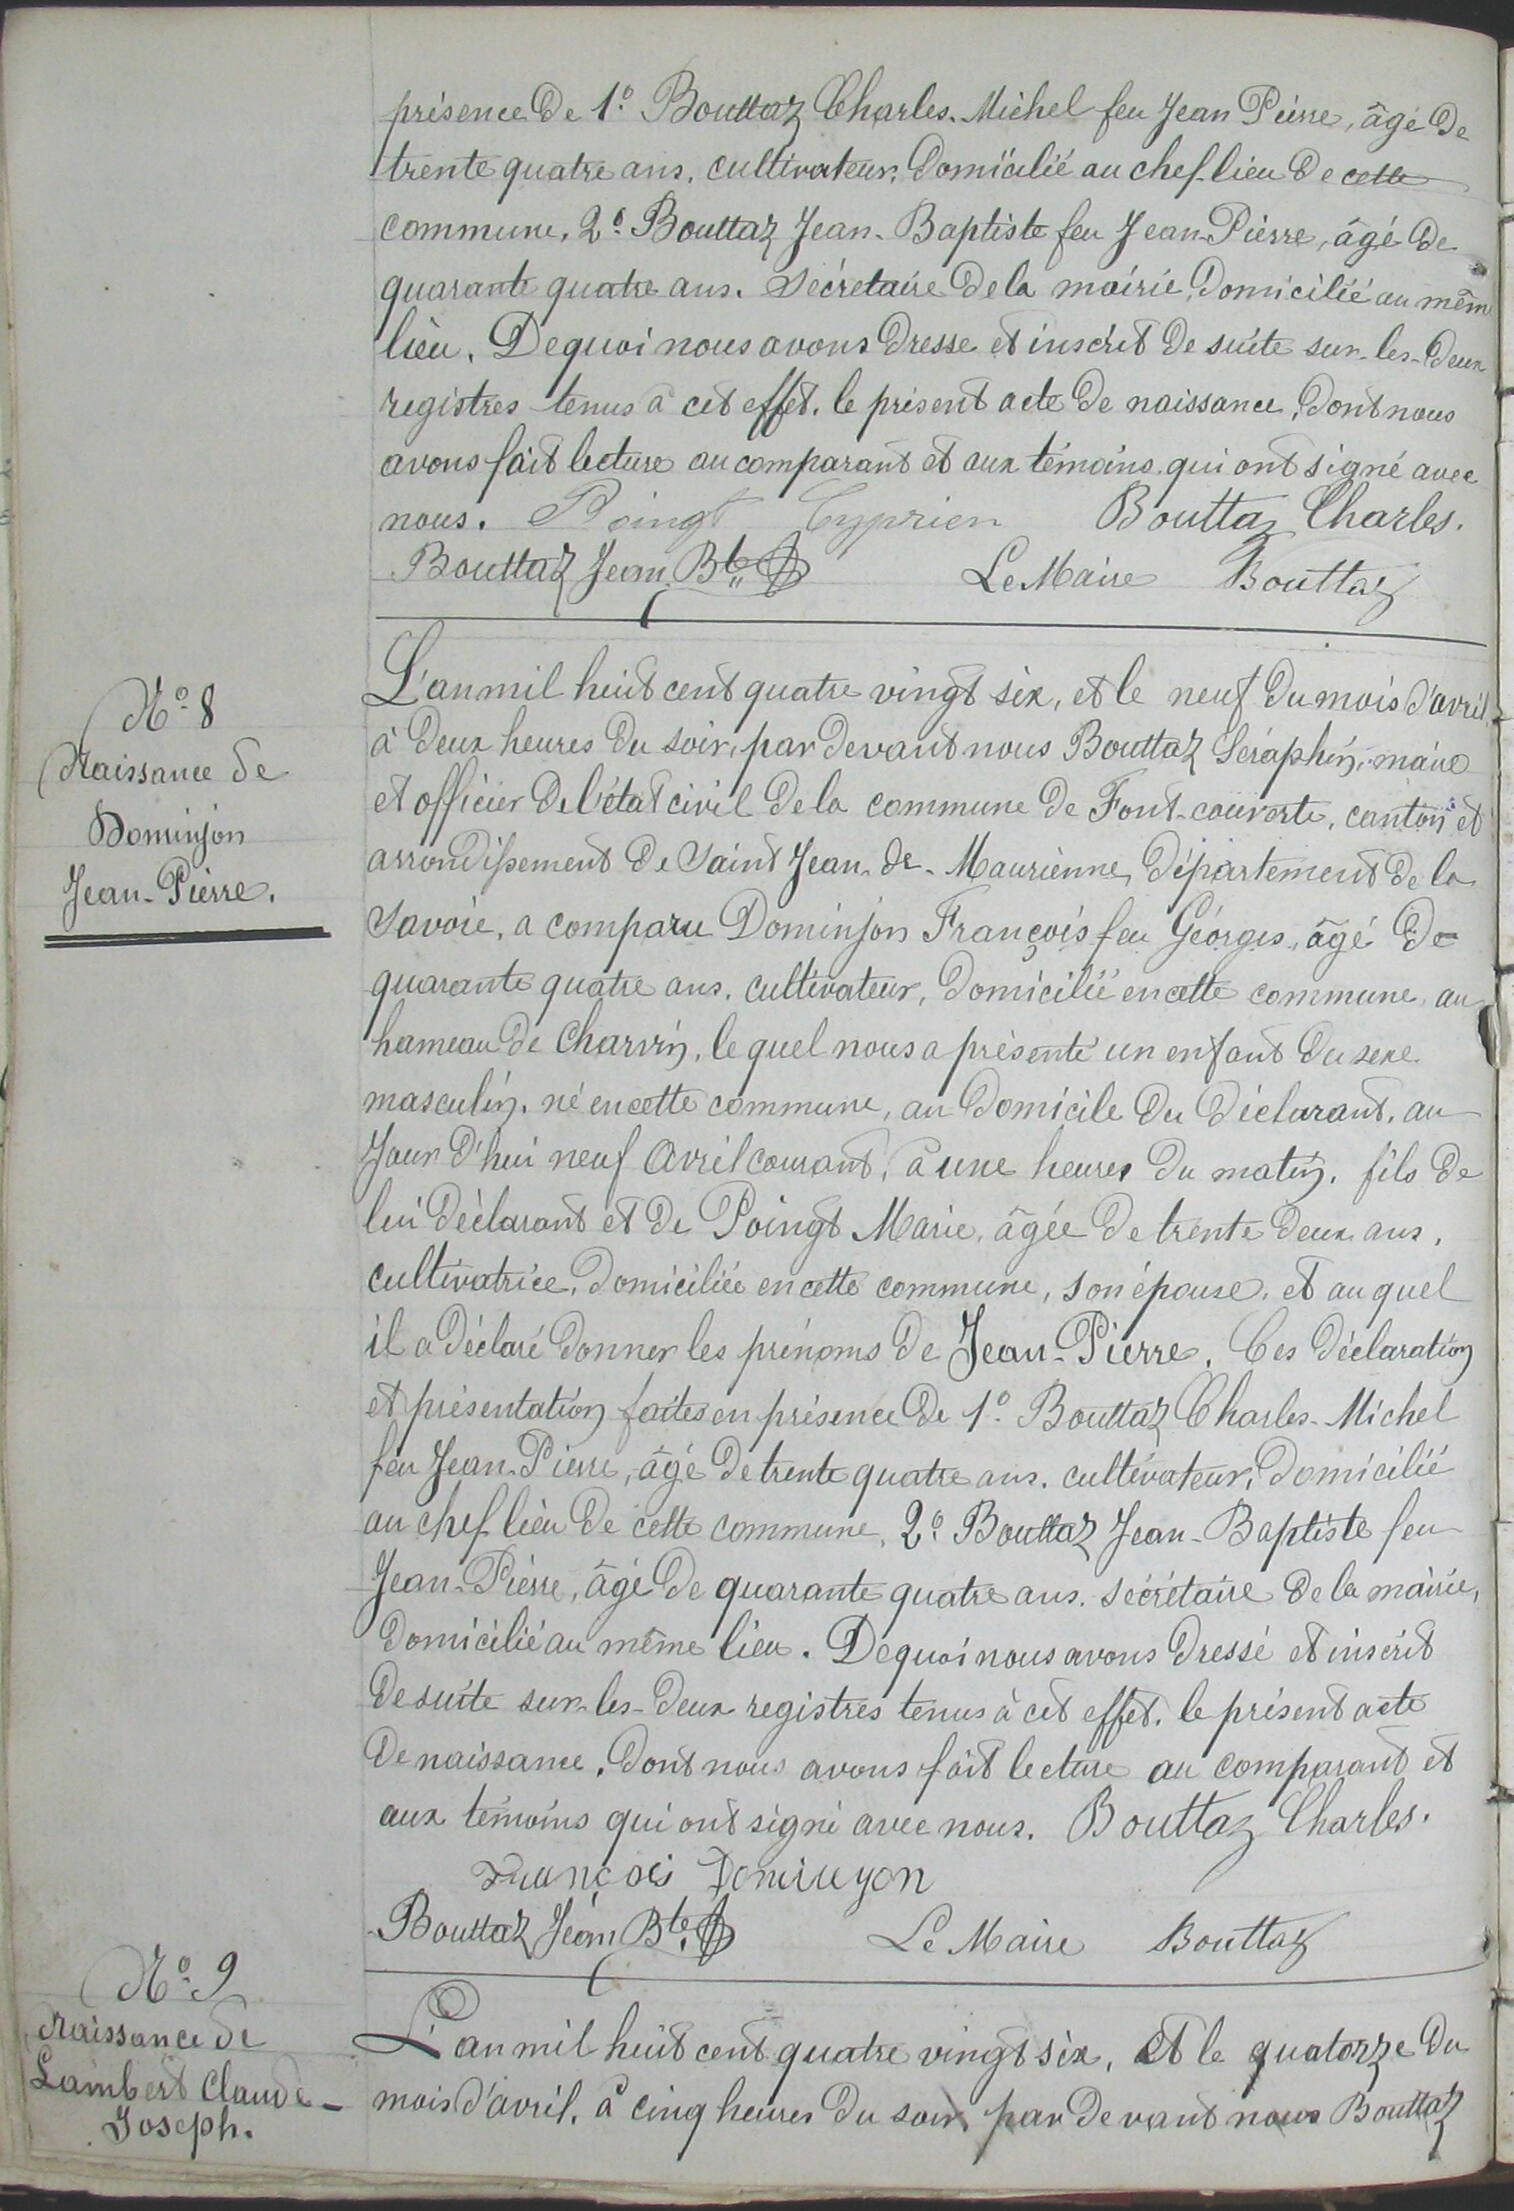 présence de 1° Bouttaz Charles-Michel feu Jean Pierre, âgé de
trente quatre ans, cultivateur, domicilié au chef-lieu de cette
commune, 2° Bouttaz Jean-Baptiste feu Jean-Pierre, âgé de
quarante quatre ans, Secrétaire de la mairie, domicilié au mêm
lieu. De quoi nous avons dressé et inscrit de suite sur-les-deux
registres tenus à cet effet, le présent acte de naissance, dont nous
avons fait lecture au comparant et aux témoins qui ont signé avec
nous. Poingt Cyprien Bouttaz Charles.
Bouttaz Jean Bte
Le Maire Bouttaz
N° 8
Naissance de
Dominjon
Jean-Pierre.
L'an mil huit cent quatre vingt six, et le neuf du mois d'avril,
à deux heures du soir, par devant nous Bouttaz Séraphin, maire
et officier de l'état civil de la commune de Font-couverte, canton et
arrondissement de Saint Jean-de-Maurienne, département de la
Savoie, a comparu Dominjon François feu Géorges, âgé de
quarante quatre ans, cultivateur, domicilié en cette commune, au
hameau de Charvin, le quel nous a présenté un enfant du sexe
masculin, né en cette commune, au domicile du déclarant, au
Jour d'hui neuf Avril courant, à une heures du matin, fils de
lui déclarant et de Poingt Marie, âgée de trente deux ans,
cultivatrice, domiciliée en cette commune, son épouse, et au quel
il a déclaré donner les prénoms de Jean-Pierre. Ces déclaration
et présentation faites en présence de 1° Bouttaz Charles-Michel
feu Jean-Pierre, âgé de trente quatre ans, cultivateur, domicilié
au chef lieu de cette commune, 2° Bouttaz Jean-Baptiste feu
Jean-Pierre, âgé de quarante quatre ans, secrétaire de la mairie,
domicilié au même lieu. De quoi nous avons dressé et inscrit
de suite sur-les-deux registres tenus à cet effet, le présent acte
de naissance, dont nous avons fait lecture au comparant et
aux témoins qui ont signé avec nous. Bouttaz Charles.
François Dominyon
Bouttaz Jean Bte
Le Maire Bouttaz
N° 9
Naissance de
Lambert Claude-
Joseph.
L'an mil huit cent quatre vingt six, et le quatorze du
mois d'avril, à cinq heures du soir, par devant nous Bouttaz